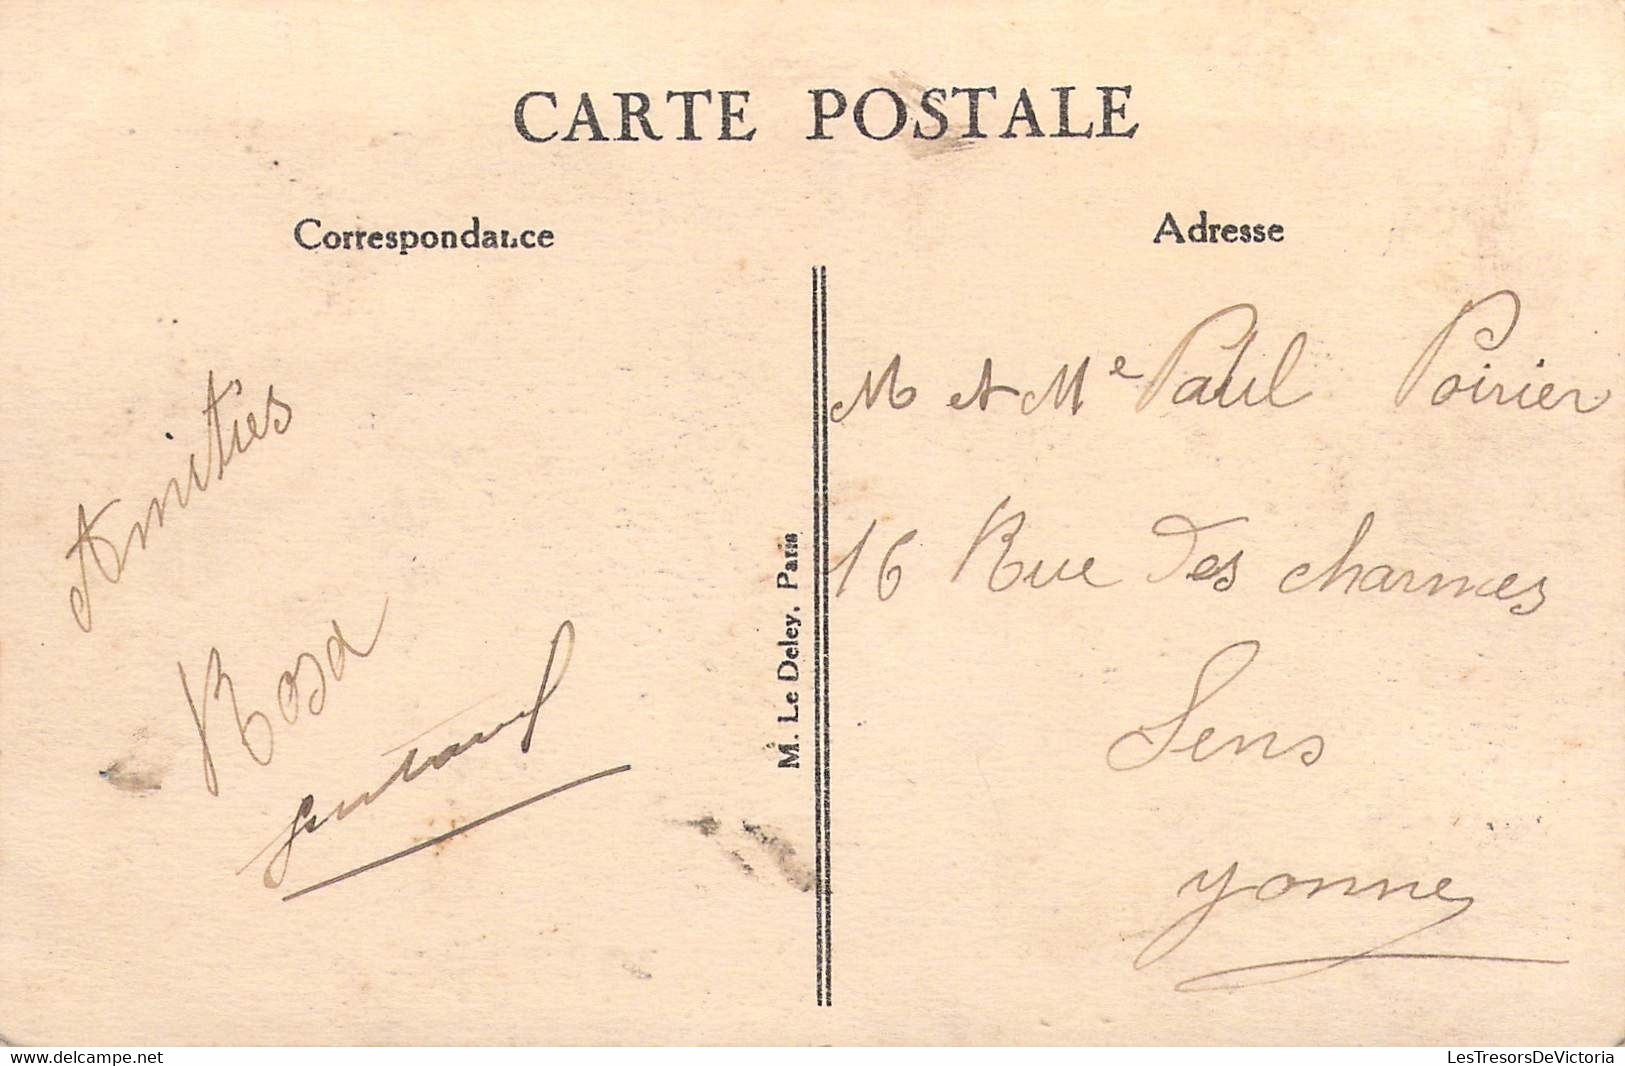 CARTE POSTALE
Correspondance
Adresse
Amitiés
Rosa
M. Le Deley, Paris
M et Me Paul Poirier
16 Rue des charmes
Sens
yonne
www.delcampe.net
LesTresorsDeVictoria